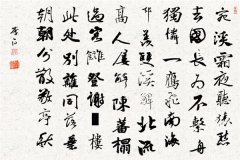 宛溪霜夜聽猿愁
去國長為不繫舟
獨憐一雁飛南海
卻羨雙溪解北流
高人屢解陳蕃榻
過客難登謝樓
此處別離同落葉
朝朝分散敬亭秋
李白